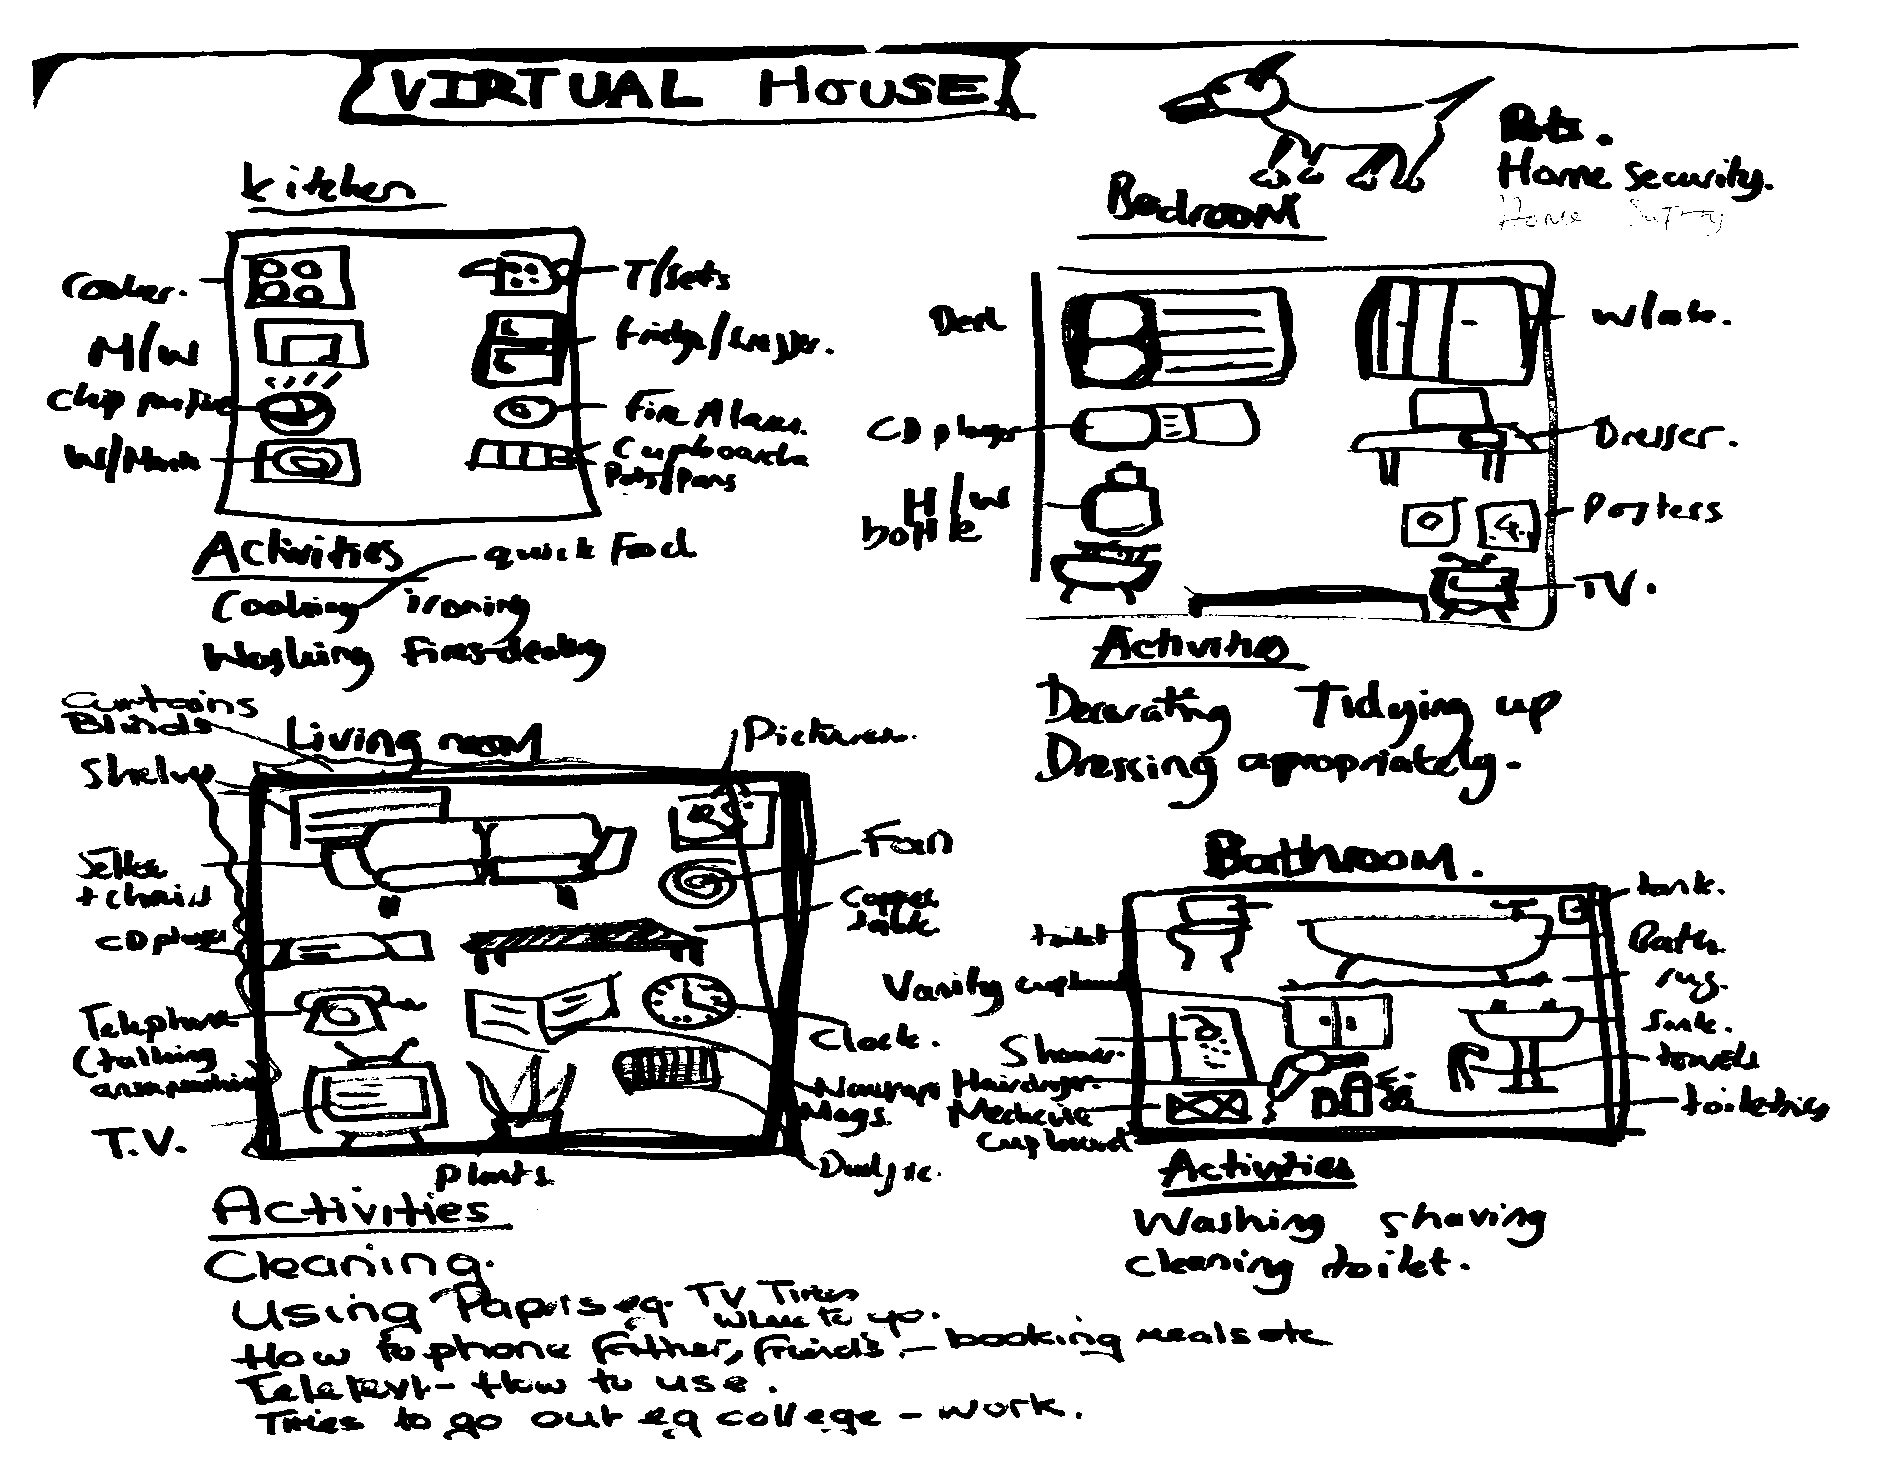 VIRTUAL HOUSE
Pets.
Home Security.
Home
Kitchen
Cooker.
M/W
Chip pan fire
W/Mach
T/Sets
Fridge/freezer.
Fire Alarm.
Cupboards
Pots/Pans
Activities
quick Food
Cooking ironing
Washing fires-dealing
Bedroom
Bed
CD player
H/W
bottle
W/robe.
Dresser.
Posters
TV.
Activities
Decorating Tidying up
Dressing appropriately.
Living room
Curtains
Blinds
Shelves
Settee
+ chairs
CD player
Telephone
(talking
ansamachine
T.V.
Pictures.
Fan
Coffee
table
Clock.
Newspaps
Mags.
plants
Activities
Cleaning.
Using Papers eg. TV Times
Where to go.
How to phone father, friends. - booking meals etc
Teletext - How to use.
Times to go out eg college - work.
Bathroom.
toilet
Vanity cupboard
Shower.
Hairdryer.
Medicine
cupboard
tank.
Bath
rug.
Sink.
towels
toiletries
Activities
Washing shaving
cleaning toilet.